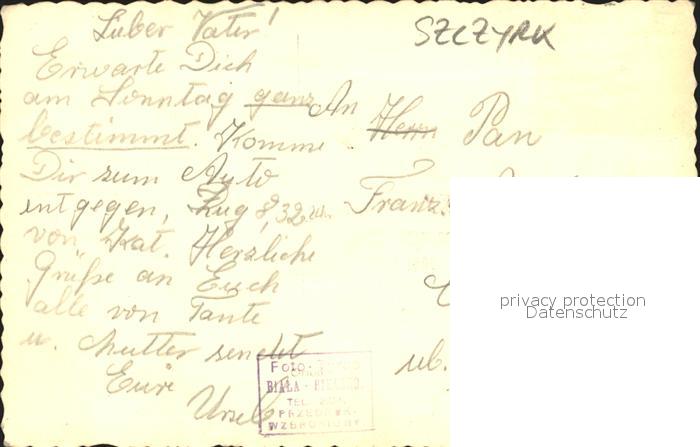 SZCZYRK
Lieber Vater!
Erwarte Dich
am Sonntag ganz
bestimmt. Komme
Dir zum Auto
entgegen, Zug 8,32
von Kat. Herzliche
Grüße an Euch
alle von Tante
u. Mutter sendet
Eure
Ursel
An Herrn Pan
Franz
ul.
Foto-
BIAŁA - BIELSKO
TEL.
PRZEDRUK
WZBRONIONY
privacy protection
Datenschutz